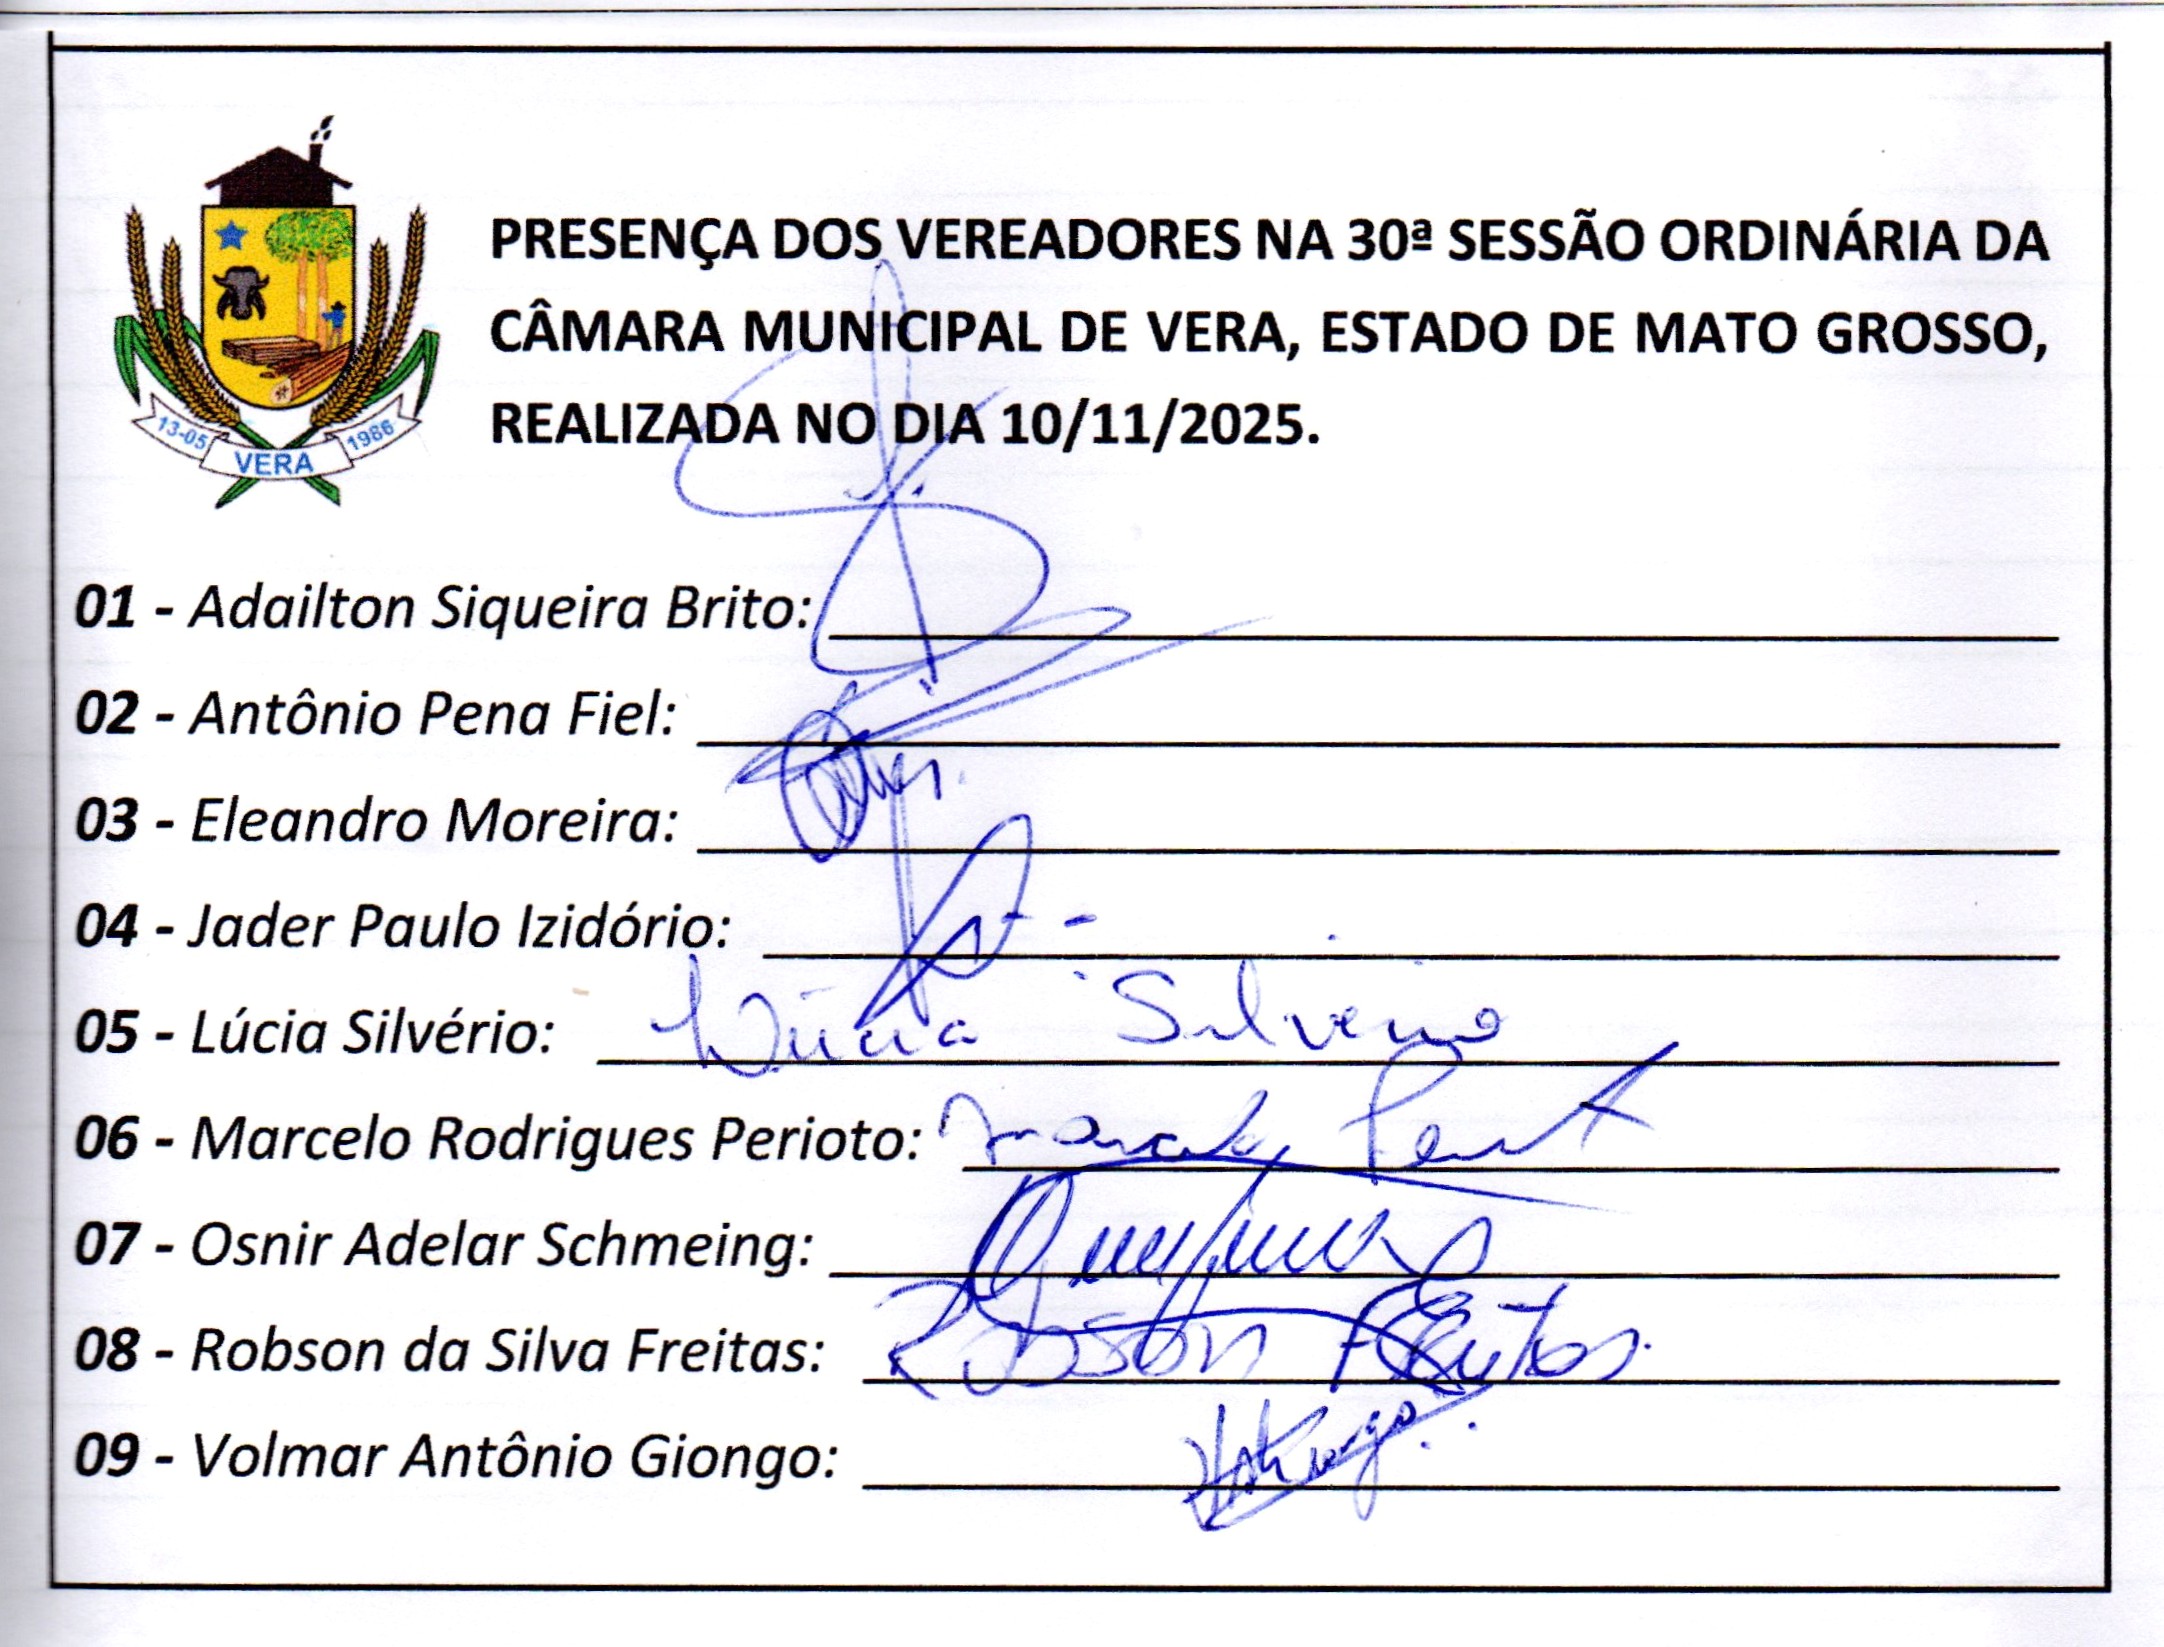 PRESENÇA DOS VEREADORES NA 30ª SESSÃO ORDINÁRIA DA
CÂMARA MUNICIPAL DE VERA, ESTADO DE MATO GROSSO,
REALIZADA NO DIA 10/11/2025.
13-05 VERA 1986
01 - Adailton Siqueira Brito:
02 - Antônio Pena Fiel:
03 - Eleandro Moreira:
04 - Jader Paulo Izidório:
05 - Lúcia Silvério: Lúcia Silverio
06 - Marcelo Rodrigues Perioto: Marcelo
07 - Osnir Adelar Schmeing:
08 - Robson da Silva Freitas: Robson Freitas
09 - Volmar Antônio Giongo: